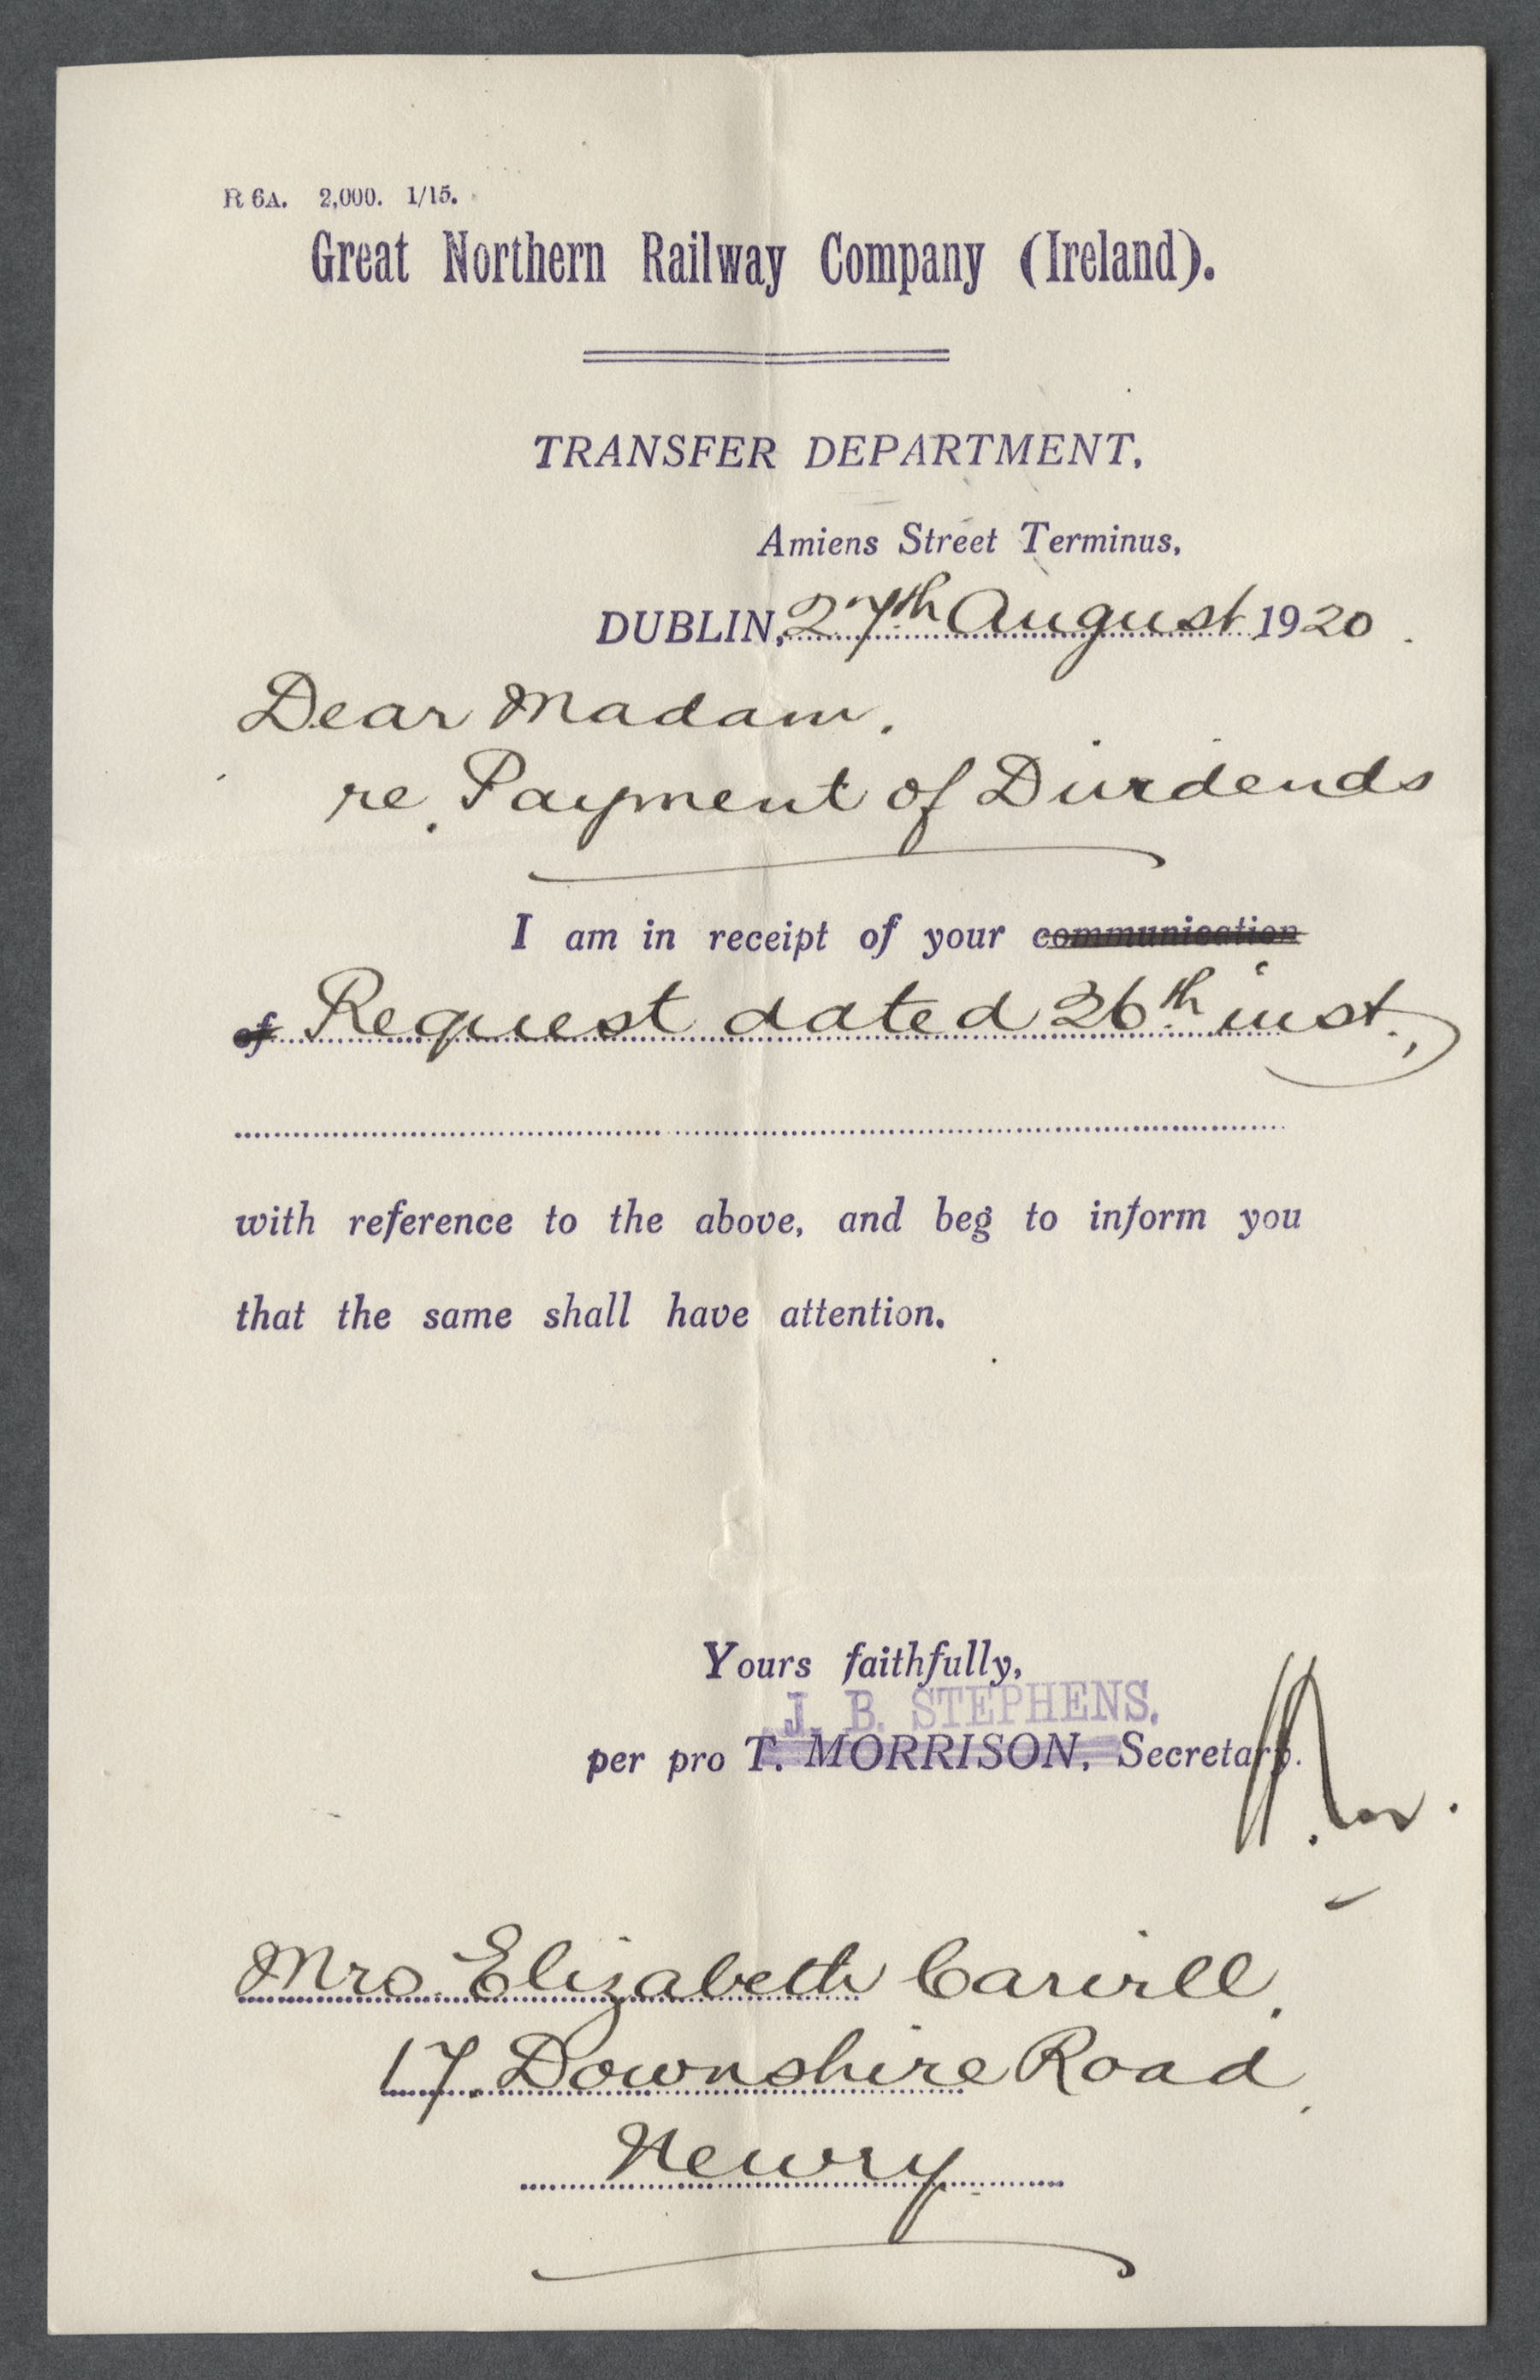 R 6A. 2,000. 1/15.
Great Northern Railway Company (Ireland).
TRANSFER DEPARTMENT,
Amiens Street Terminus,
DUBLIN, 27th August 1920.
Dear Madam.
re. Payment of Dividends
I am in receipt of your communication
of Request dated 26th inst.,
with reference to the above, and beg to inform you
that the same shall have attention.
Yours faithfully,
J. B. STEPHENS.
per pro T. MORRISON, Secretary.
Mrs. Elizabeth Carvill,
17. Downshire Road,
Newry